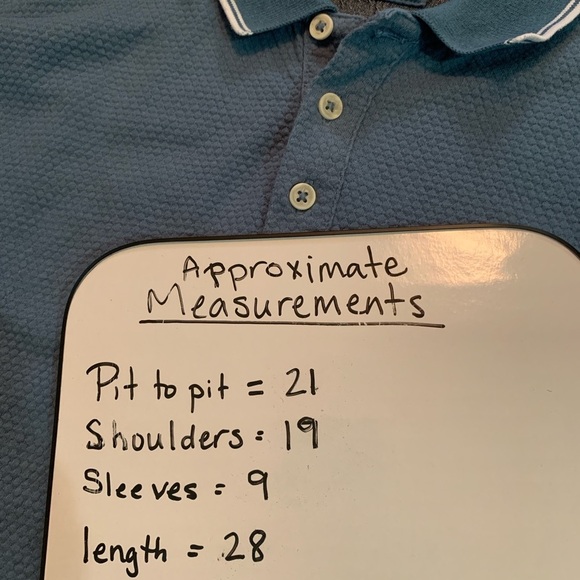 Approximate
Measurements
Pit to pit = 21
Shoulders = 19
Sleeves = 9
length = 28